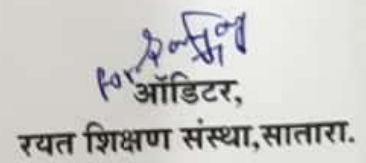 for
ऑडिटर,
रयत शिक्षण संस्था,सातारा.